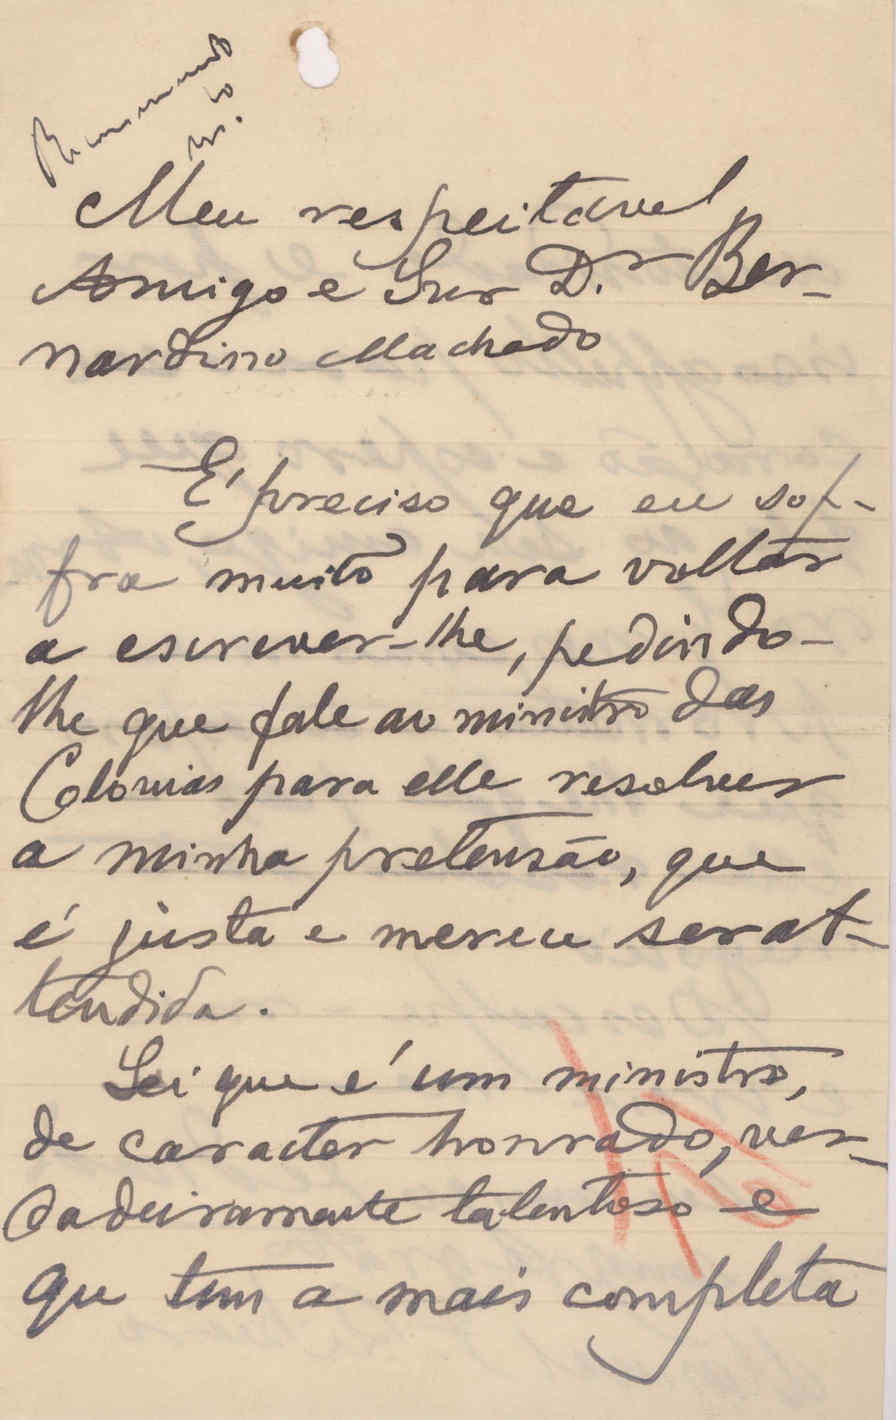 Meu respeitavel
Amigo e Snr D.r Ber-
nardino Machado
É preciso que eu sof-
fra muito para voltar
a escrever-lhe, pedindo-
lhe que fale ao ministro das
Colonias para elle resolver
a minha pretensão, que
é justa e merece ser at-
tendida.
Sei que é um ministro,
de caracter honrado, ver-
dadeiramente talentoso e
que tem a mais completa